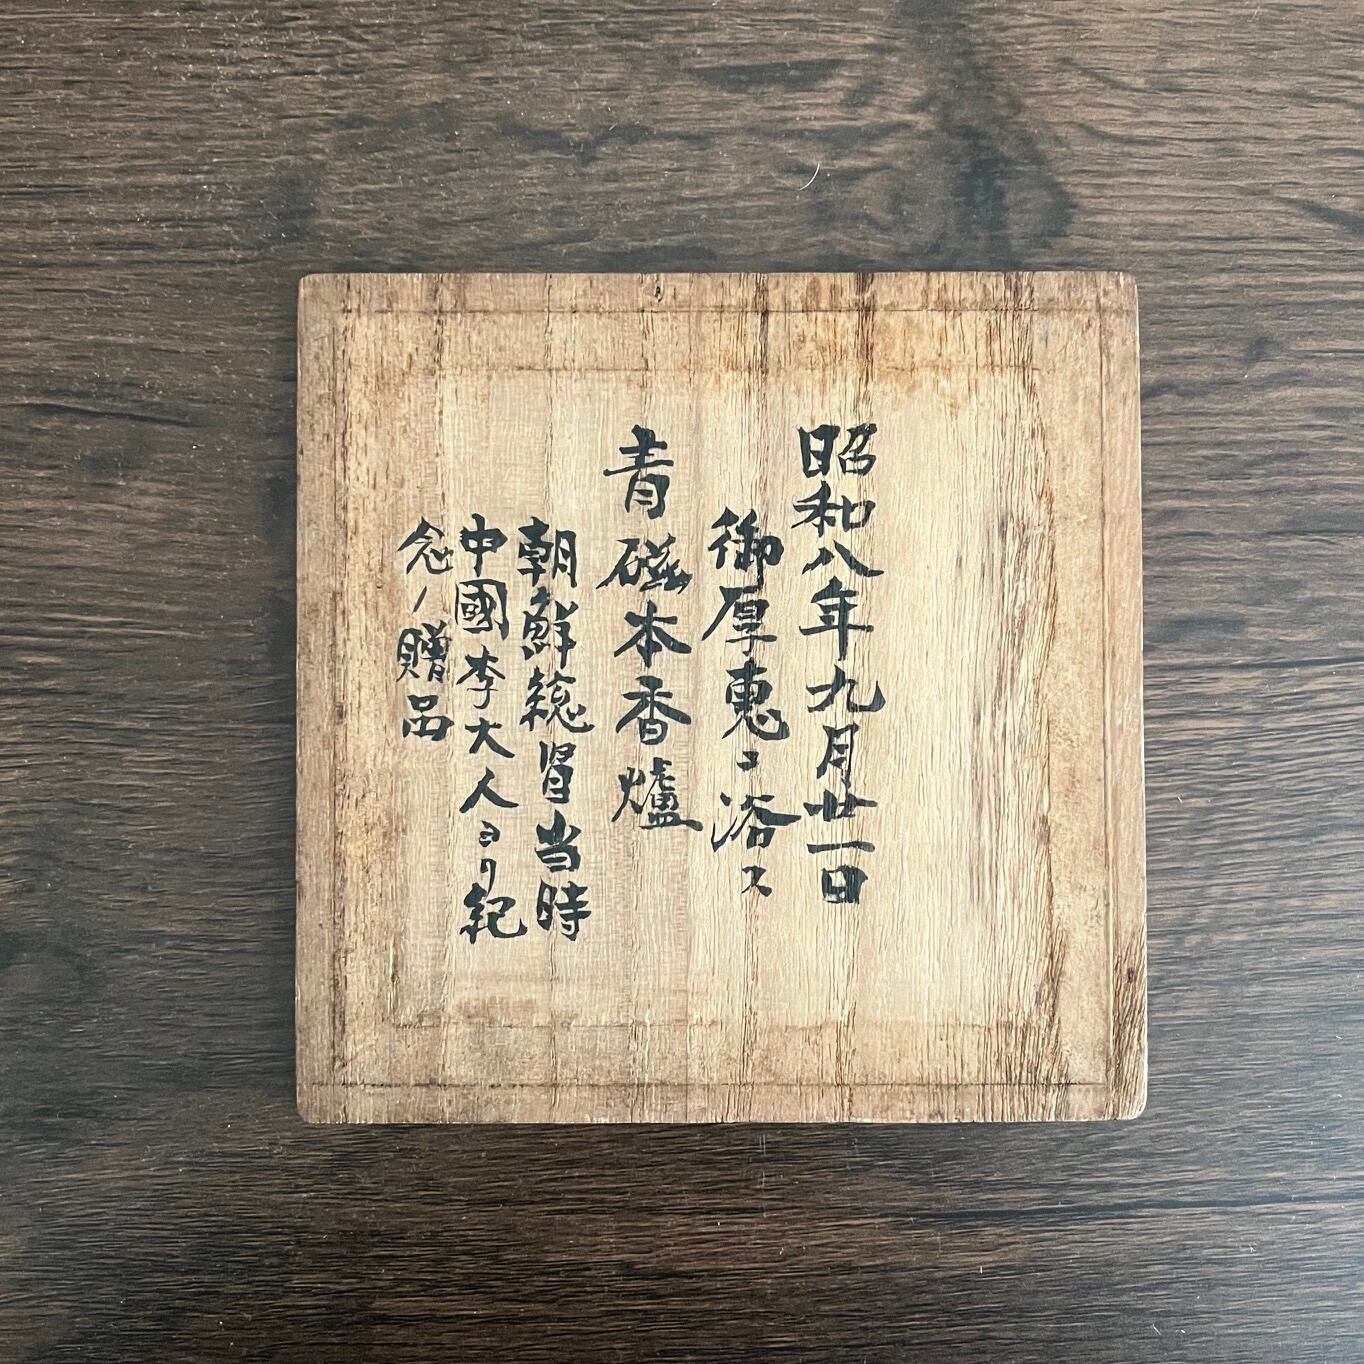 昭和八年九月廿一日
御厚恵ニ浴ス
青磁本香爐
朝鮮総督当時
中國李大人ヨリ紀
念ノ贈品